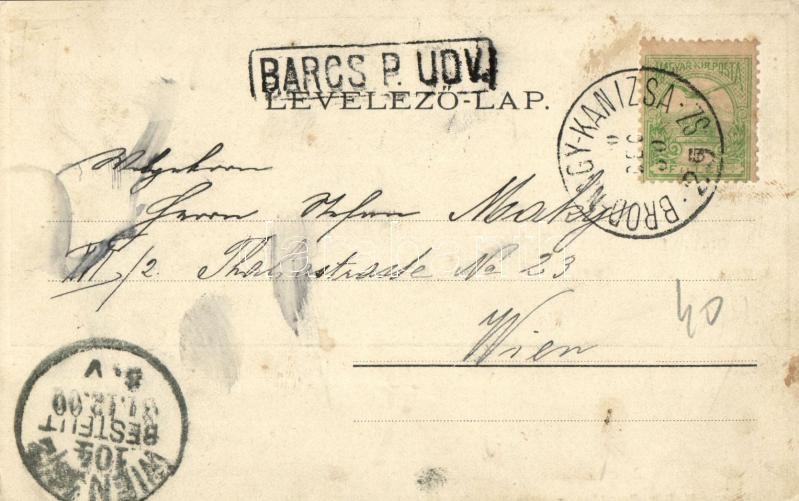 BARCS P. UDV.
LEVELEZŐ-LAP.
MAGYAR KIR. POSTA
NAGY-KANIZSA · ZS · BROD · 29
DEC
Wolgeboren
Herrn Stefan Maky
III/2. Thaliastrasse No 23
Wien
40
WIEN
104
BESTELLT
31.12.00
8.V